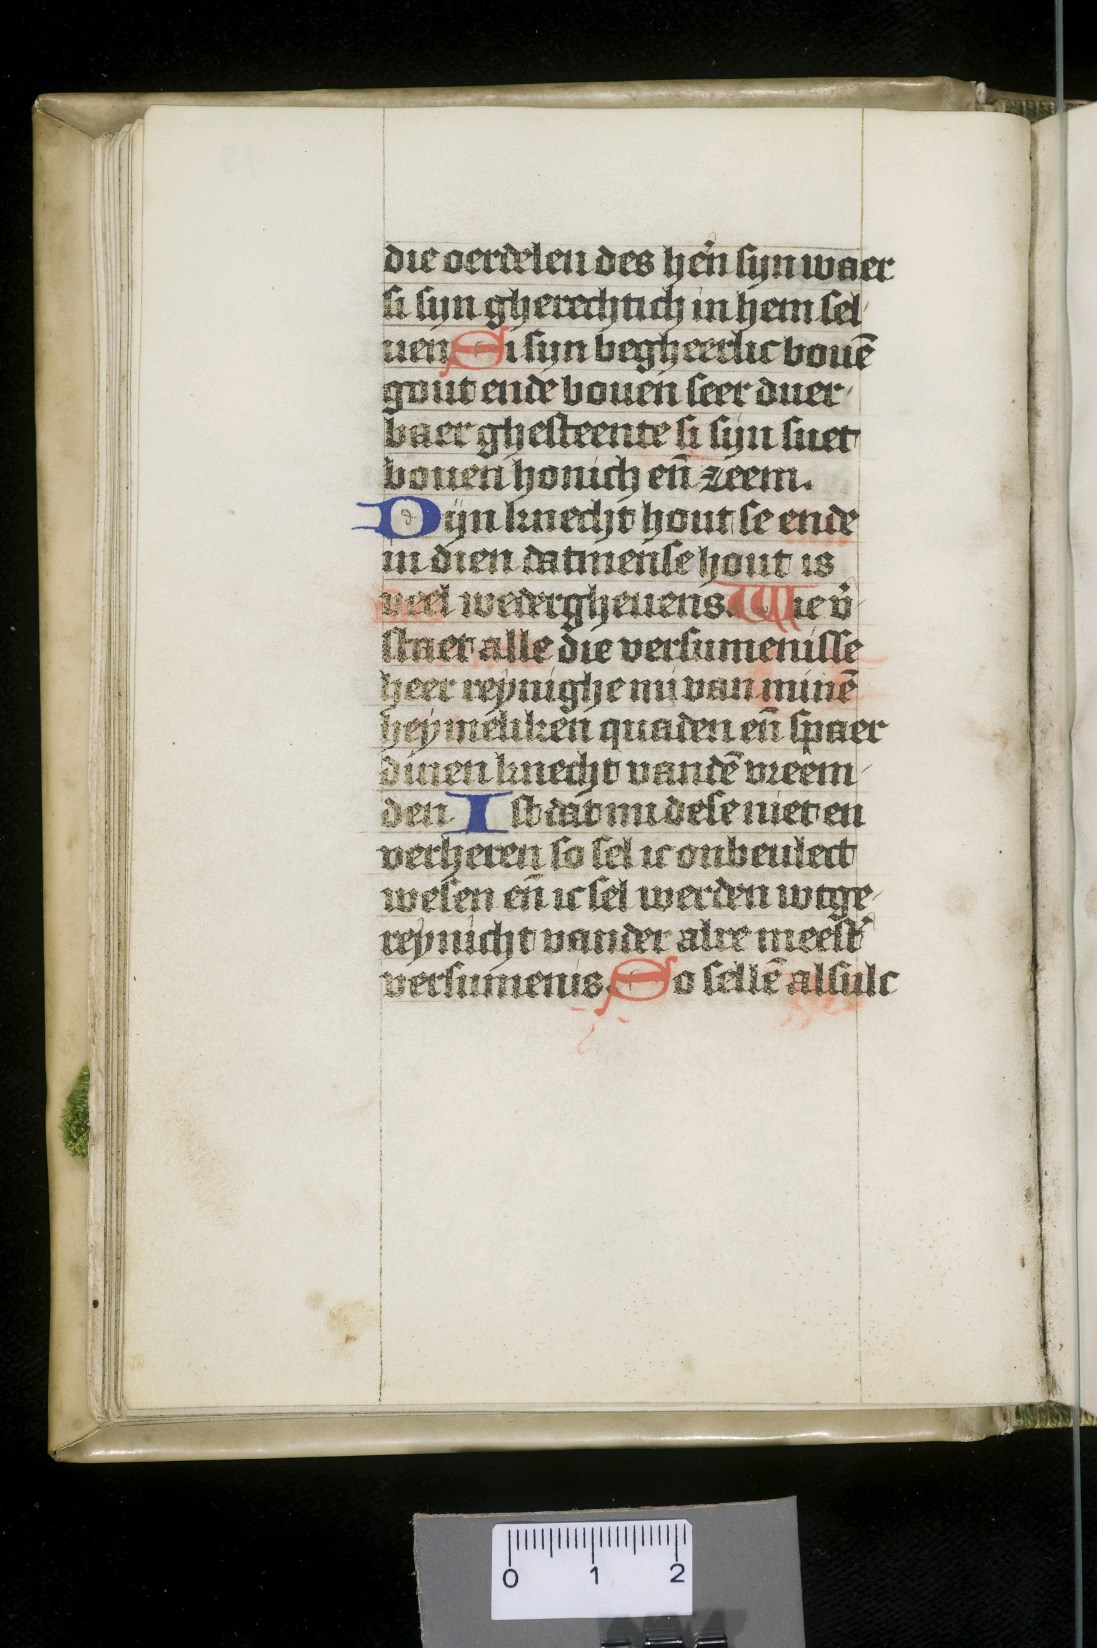 die oerdelen des hēn syn waer
si syn gherechtich in hem sel
uen Si syn begheerlic bouē
gout ende bouen seer duer
baer ghesteente si syn suet
bouen honich en̄ zeem.
Dijn knecht hout se ende
in dien datmense hout is
veel wedergheuens. Wie v̓
staet alle die versumenisse
heer reynighe mi van minē
heymeliken quaden en̄ spaer
dinen knecht vandē vreem
den Ist dat mi dese niet en
verheren so sel ic onbeulect
wesen en̄ ic sel werden wtge
reynicht vander alre meest̓
versumenis. So sellē alsulc
0 1 2